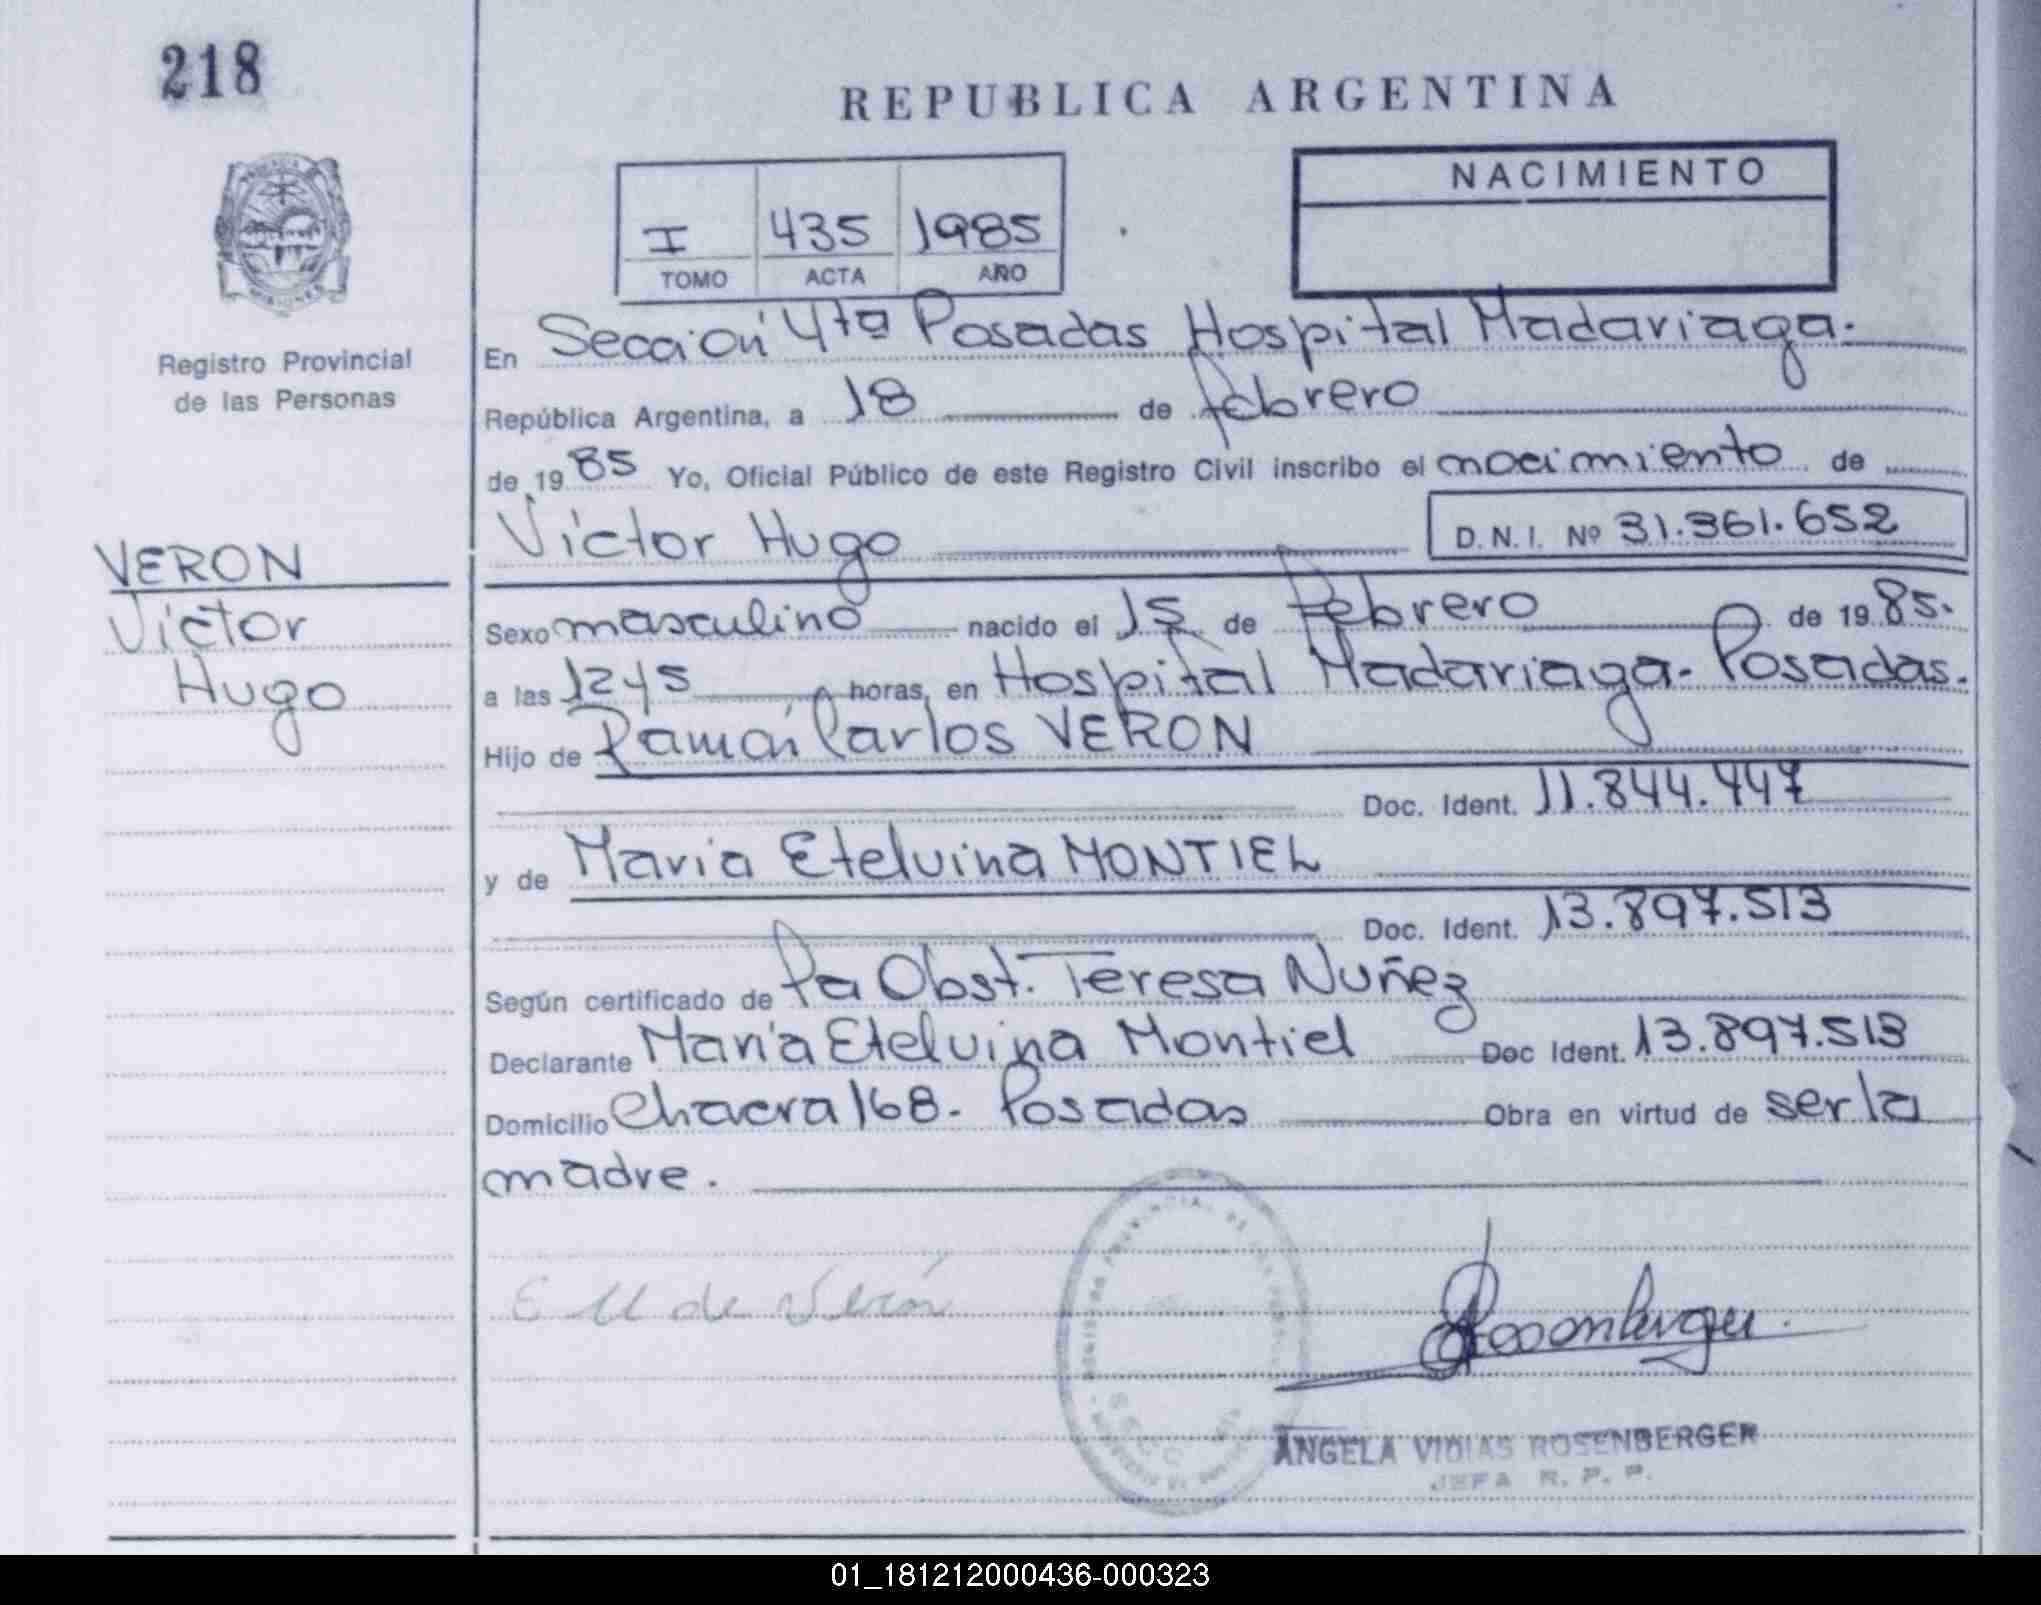 218
REPUBLICA ARGENTINA
NACIMIENTO
I 435 1985
TOMO ACTA AÑO
Registro Provincial
de las Personas
En Sección 4ta Posadas Hospital Madariaga.
República Argentina, a 18 de febrero
de 1985 Yo, Oficial Público de este Registro Civil inscribo el nacimiento de
Victor Hugo D.N.I. Nº 31.361.652
VERON
Victor
Hugo
Sexo masculino nacido el 15 de Febrero de 1985.
a las 1245 horas, en Hospital Madariaga. Posadas.
Hijo de Ramón Carlos VERON
Doc. Ident. 11.844.447
y de Maria Etelvina MONTIEL
Doc. Ident. 13.897.513
Según certificado de Pa Obst. Teresa Nuñez
Declarante María Etelvina Montiel Doc Ident. 13.897.513
Domicilio Chacra 168. Posadas Obra en virtud de ser la
madre.
E M de Verón
Rosenberger
ANGELA VIDIAS ROSENBERGER
JEFA R. P. P.
01_181212000436-000323